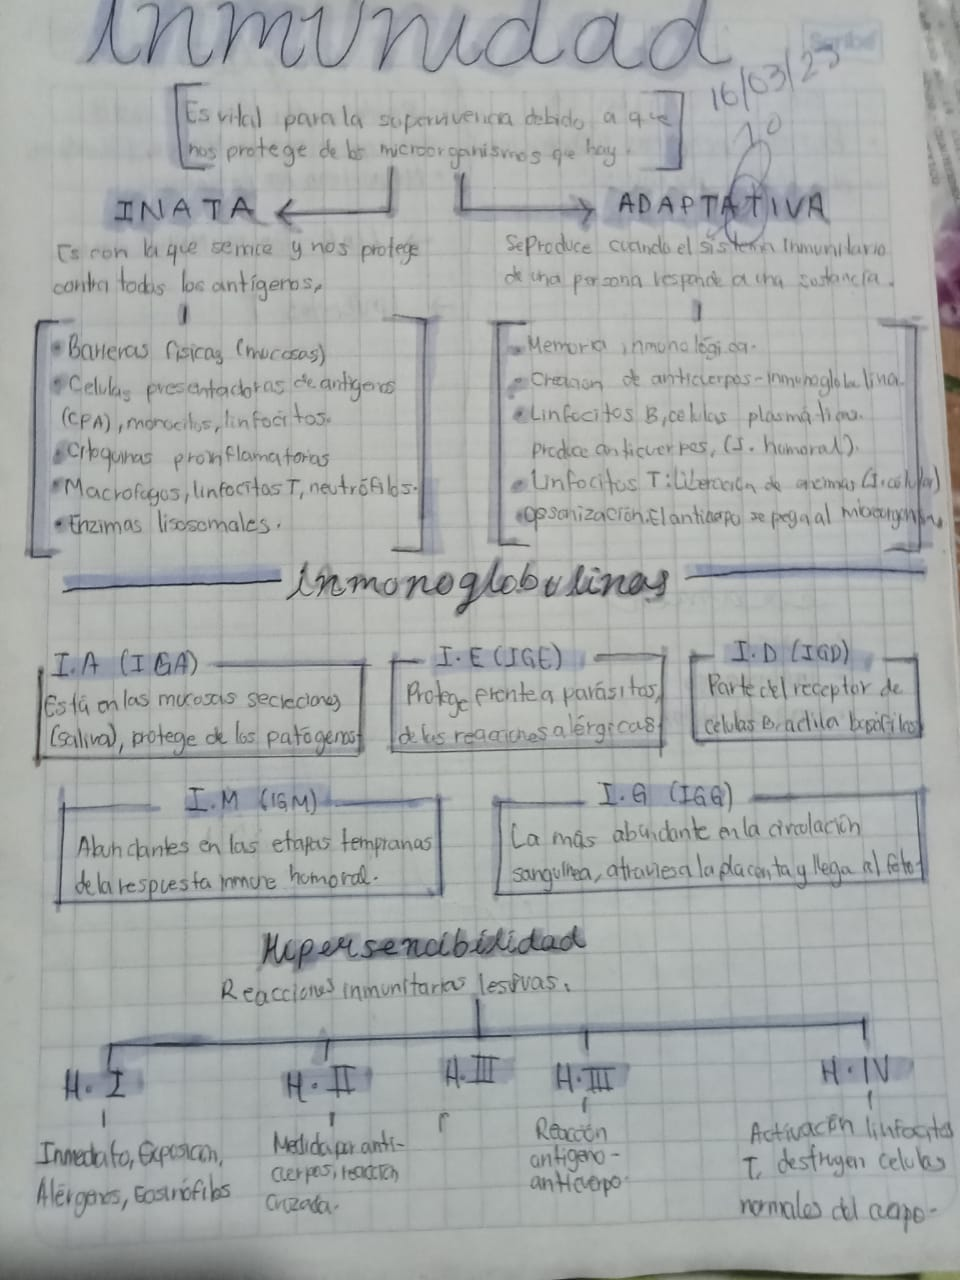 Inmunidad
Scribe
16/03/23
10
Es vital para la supervivencia debido a que
nos protege de los microorganismos que hay.
INATA
ADAPTATIVA
Es con la que se nace y nos protege
contra todos los antígenos.
Se Produce cuando el sistema Inmunitario
de una persona responde a una sustancia.
• Barreras físicas (mucosas)
• Celulas presentadoras de antígenos
(CPA), monocitos, linfocitos.
• Citoquinas proinflamatorias
• Macrofagos, linfocitos T, neutrófilos.
• Enzimas lisosomales.
• Memoria inmonológica.
• Creacion de anticuerpos-inmunoglobulina
• Linfocitos B, celulas plasmáticas.
Produce anticuerpos, (I. humoral).
• Linfocitos T: Liberación de enzimas (I. celular)
• Opsonización. El anticuerpo se pega al microorganismo
Inmonoglobulinas
I.A (IGA)
Está en las mucosas secreciones
(saliva), protege de los patógenos
I.E (IGE)
Protege frente a parásitos,
de las reacciones alérgicas
I.D (IGD)
Parte del receptor de
celulas B, activa basófilos
I.M (IGM)
Abundantes en las etapas tempranas
de la respuesta inmune humoral.
I.G (IGG)
La más abundante en la circulación
sanguínea, atraviesa la placenta y llega al feto
Hipersencibilidad
Reacciones inmunitarias lesivas.
H. I
H. II
H. III
H. III
H. IV
Inmediato, Exposicion,
Alérgenos, Eosinófilos
Medida por anti-
cuerpos, reacción
cruzada.
Reacción
antigeno-
anticuerpo.
Activación linfocitos
T, destruyen celulas
normales del cuerpo.